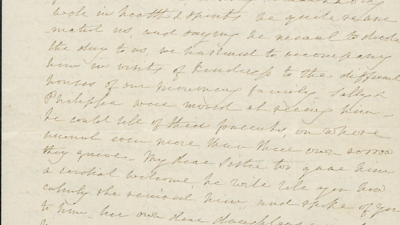 well in health & spirits, he quite re ani
mated us, and saying he meant to dedicate
the day to us, we hastened to accompany
him in visits of kindness to the different
houses of our mourning family. Sally &
Philippa were moved at seeing him
he could tell of their parents, on whose
mind even more than their own sorrow
they grieve. My dear Sister too gave him
a cordial welcome, he will tell you how
calmly she received him, and spoke of you
to him, her own dear daughters